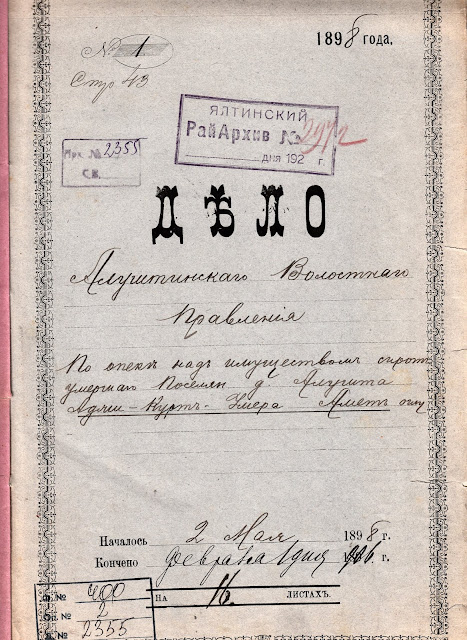 № 1
1898 года.
Стр 43
ЯЛТИНСКИЙ
РайАрхив №
дня 192 г.
№ 2355
С.В.
ДѢЛО
Алуштинскаго Волостнаго
Правленія
По опекѣ надъ имуществомъ сирот
умершаго Поселян д Алушта
Аджи-Куртъ-Умера Аметъ оглу
Началось 2 Мая 1898 г.
Кончено Февраля 1 дня 1906 г.
НА 16. ЛИСТАХЪ.
Ф. № 400
Оп. № 2
Д. № 2355